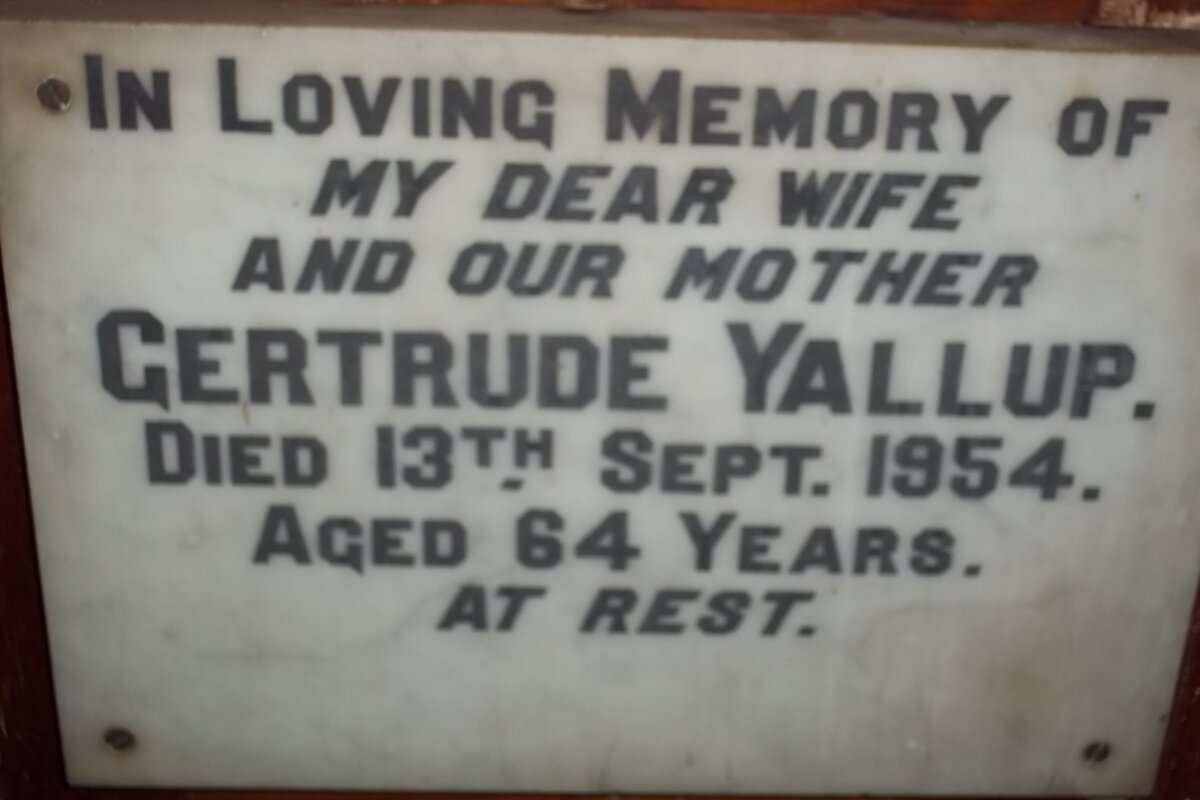 In Loving Memory of
MY DEAR WIFE
AND OUR MOTHER
Gertrude Yallup.
Died 13th Sept. 1954.
Aged 64 Years.
AT REST.